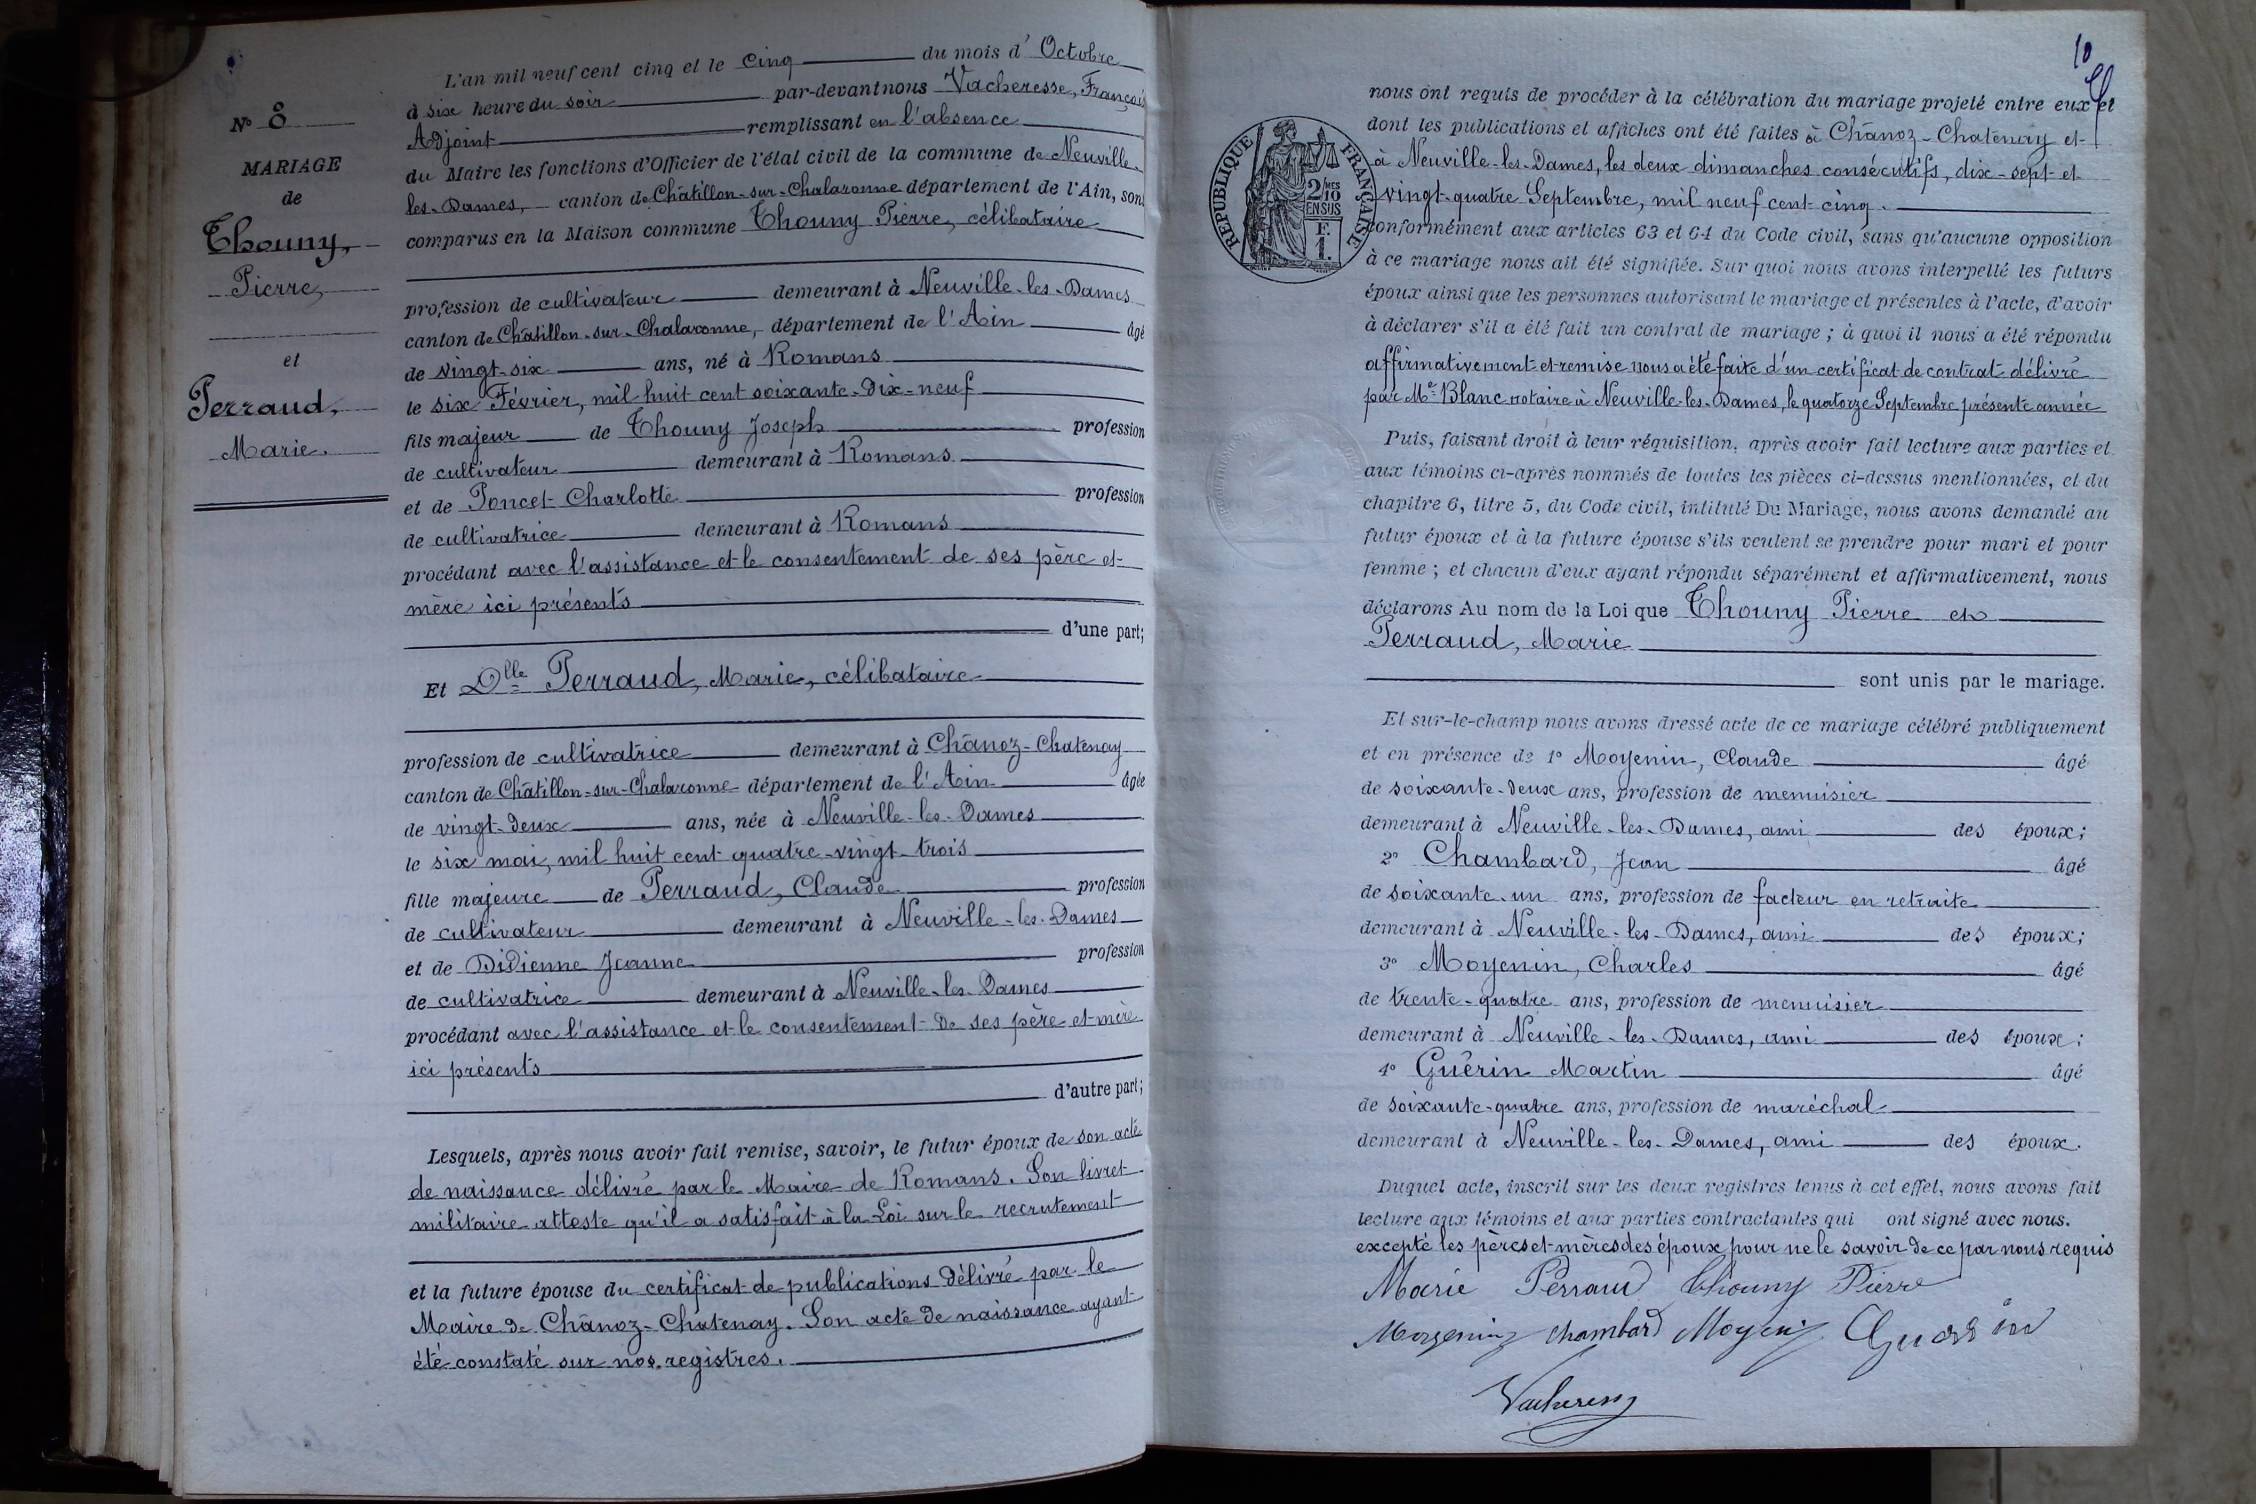 N° 8
MARIAGE
de
Thouny,
Pierre,
et
Perraud,
Marie.
L'an mil neuf cent cinq et le cinq du mois d'Octobre
à six heure du soir par-devant nous Vacheresse, François
Adjoint remplissant en l'absence
du Maire les fonctions d'Officier de l'état civil de la commune de Neuville-
les-Dames, canton de Châtillon-sur-Chalaronne département de l'Ain, sont
comparus en la Maison commune Thouny Pierre, célibataire
profession de cultivateur demeurant à Neuville-les-Dames
canton de Châtillon-sur-Chalaronne, département de l'Ain âgé
de vingt-six ans, né à Romans
le six Février, mil huit cent soixante-dix-neuf
fils majeur de Thouny Joseph profession
de cultivateur demeurant à Romans
et de Poncet Charlotte profession
de cultivatrice demeurant à Romans
procédant avec l'assistance et le consentement de ses père et
mère ici présents
d'une part;
Et Dlle Perraud, Marie, célibataire
profession de cultivatrice demeurant à Chânoz-Chatenay
canton de Châtillon-sur-Chalaronne département de l'Ain âgée
de vingt-deux ans, née à Neuville-les-Dames
le six mai, mil huit cent quatre-vingt-trois
fille majeure de Perraud, Claude profession
de cultivateur demeurant à Neuville-les-Dames
et de Didienne Jeanne profession
de cultivatrice demeurant à Neuville-les-Dames
procédant avec l'assistance et le consentement de ses père et mère
ici présents
d'autre part;
Lesquels, après nous avoir fait remise, savoir, le futur époux de son acte
de naissance délivré par le Maire de Romans. Son livret
militaire atteste qu'il a satisfait à la Loi sur le recrutement
et la future épouse du certificat de publications délivré par le
Maire de Chânoz-Chatenay. Son acte de naissance ayant
été constaté sur nos registres.
10
nous ont requis de procéder à la célébration du mariage projeté entre eux et
dont les publications et affiches ont été faites à Chânoz-Chatenay et
à Neuville-les-Dames, les deux dimanches consécutifs, dix-sept et
vingt-quatre Septembre, mil neuf cent cinq.
RÉPUBLIQUE FRANÇAISE
2 MES
10
EN SUS
F.
1.
conformément aux articles 63 et 64 du Code civil, sans qu'aucune opposition
à ce mariage nous ait été signifiée. Sur quoi nous avons interpellé les futurs
époux ainsi que les personnes autorisant le mariage et présentes à l'acte, d'avoir
à déclarer s'il a été fait un contrat de mariage; à quoi il nous a été répondu
affirmativement et remise nous a été faite d'un certificat de contrat délivré
par Me Blanc notaire à Neuville-les-Dames, le quatorze Septembre présente année
Puis, faisant droit à leur réquisition, après avoir fait lecture aux parties et
aux témoins ci-après nommés de toutes les pièces ci-dessus mentionnées, et du
chapitre 6, titre 5, du Code civil, intitulé Du Mariage, nous avons demandé au
futur époux et à la future épouse s'ils veulent se prendre pour mari et pour
femme; et chacun d'eux ayant répondu séparément et affirmativement, nous
déclarons Au nom de la Loi que Thouny Pierre et
Perraud, Marie
sont unis par le mariage.
Et sur-le-champ nous avons dressé acte de ce mariage célébré publiquement
et en présence de 1° Moyenin, Claude âgé
de soixante-deux ans, profession de menuisier
demeurant à Neuville-les-Dames, ami des époux;
2° Chambard, Jean âgé
de soixante-un ans, profession de facteur en retraite
demeurant à Neuville-les-Dames, ami des époux;
3° Moyenin, Charles âgé
de trente-quatre ans, profession de menuisier
demeurant à Neuville-les-Dames, ami des époux;
4° Guérin Martin âgé
de soixante-quatre ans, profession de maréchal
demeurant à Neuville-les-Dames, ami des époux.
Duquel acte, inscrit sur les deux registres tenus à cet effet, nous avons fait
lecture aux témoins et aux parties contractantes qui ont signé avec nous.
excepté les pères et mères des époux pour ne le savoir de ce par nous requis
Marie Perraud Thouny Pierre
Moyenin Chambard Moyenin Guérin
Vacheresse